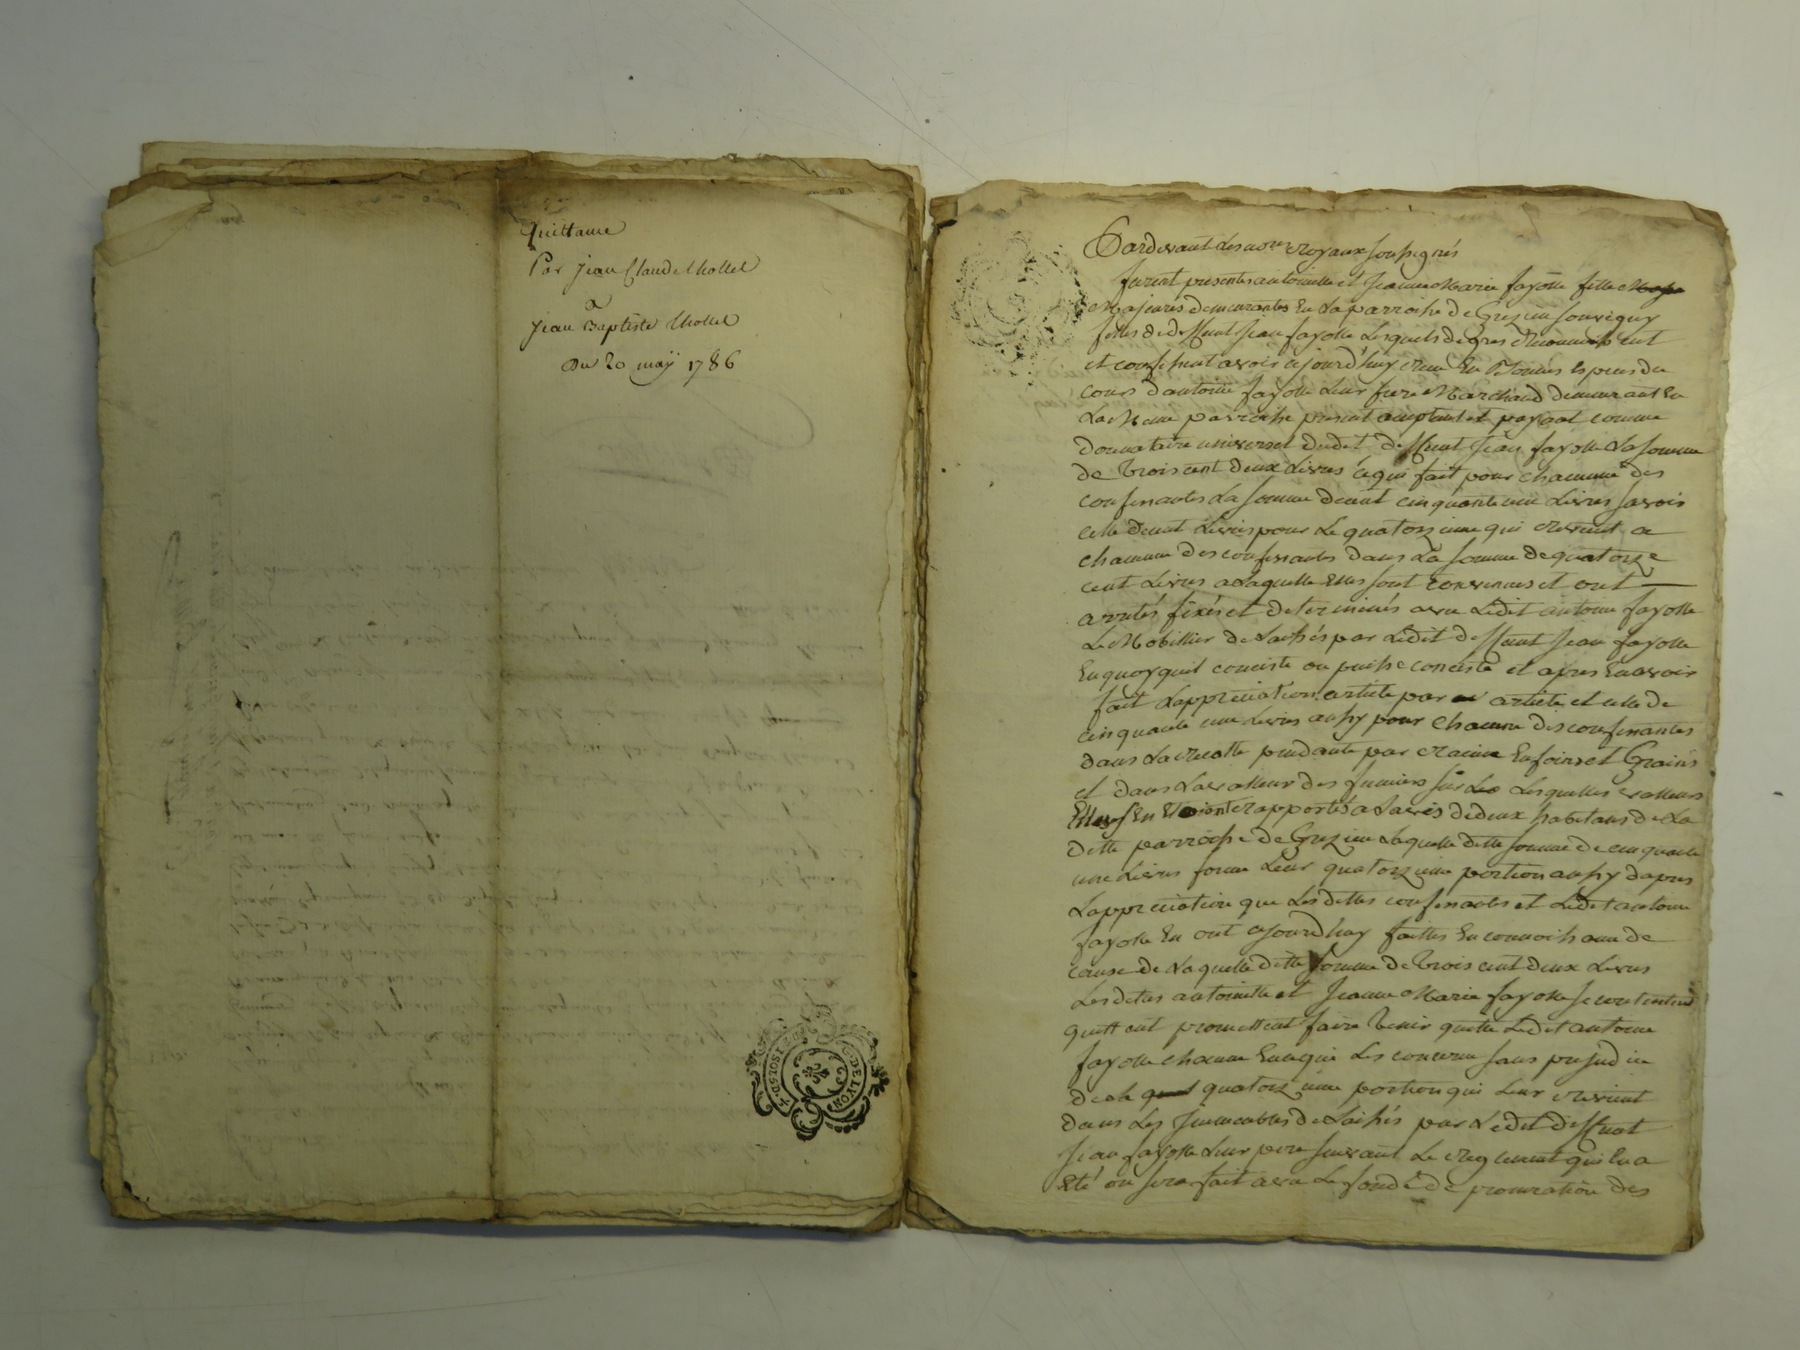 Quittance
Par jean Claude thollet
a
jean Baptiste thollet
Du 20 maÿ 1786
G. DE LYON
Pardevant Les no.res royaux soussignés
furent presentes antoinette et Jeanne Marie fayolle fille
Majeures demeurantes En La parroisse de Grezieu souvigny
filles de deffunt Jean fayolle Lesquels de gres reconnoissent
et confessent avoir cejourd'huy receu En Bonnes Especes du
cours d'antoine fayolle Leur frere Marchand demeurant En
La Meme parroisse present acceptant et payant comme
donnataire universel dudit deffunt Jean fayolle La somme
de trois cent deux Livres ce qui fait pour chacunne des
confessantes La somme de cent cinquante une Livres savoir
celle de cent Livres pour Le quatorzieme qui revient a
chacunne des confessantes dans La somme de quatorze
cent Livres a Laquelle Elles sont convenues et ont
arretés fixés et determinés avec Ledit antoine fayolle
Le Mobillier delaissés par Ledit deffunt Jean fayolle
En quoy quil conciste ou puisse conciste et apres En avoir
fait Lappreciation article par article et celle de
cinquante une Livres aussy pour chacune des confessantes
dans La recolte pendante par racine En foins et Grains
et dans La valleur des fumiers sur Lesquelles valleurs
Elles s'En Etoient rapportés a Lavis de deux habitans de La
ditte parroisse de Grezieu Laquelle ditte somme de cinquante
une Livres forme Leur quatorzieme portion aussy dapres
Lappreciation que Les dittes confessantes et Ledit antoine
fayolle En ont cejourd'huy faittes En connoissance de
cause de Laquelle ditte somme de trois cent deux Livres
Les dittes antoinette et Jeanne Marie fayolle se contentent
quittent promettent faire tenir quitte Ledit antoine
fayolle chacune En ce qui Les concerne sans prejudice
de la quatorzieme portion qui Leur revient
dans Les Immeubles delaissés par Ledit deffunt
Jean fayolle Leur pere suivant Le reglement qui En a
Eté ou sera fait avec Le fondé de procuration des